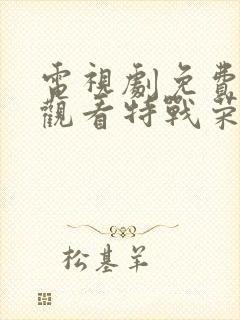 電視劇免費
觀看特戰榮
松基羊